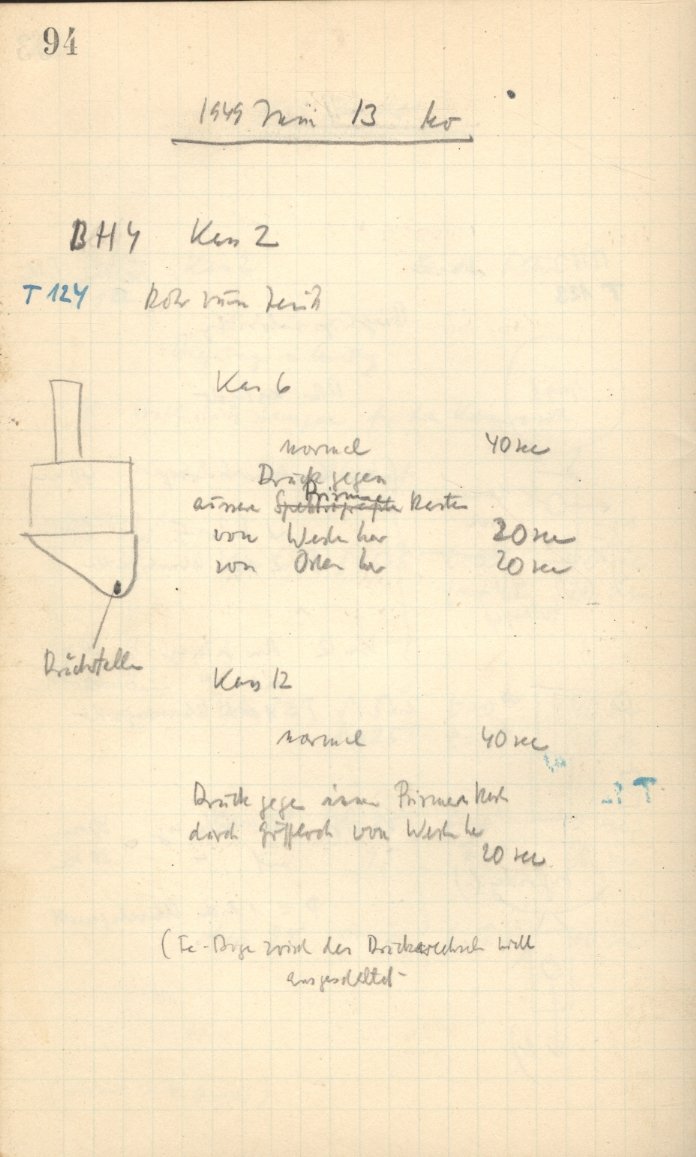 94
1949 Juni 13 ko
BH4 Kass 2
T 124 Rohr zum Zenit
Kass 6
normal 40 sec
Druck gegen
äussere Prismen Kasten
von Westen her 20 sec
von Osten her 20 sec
Druckstelle
Kass 12
normal 40 sec
Druck gegen innen Prismenkast
durch Griffloch von Westen her
20 sec
(Fe-Bogen wird bei Druckwechsel nicht
ausgeschaltet